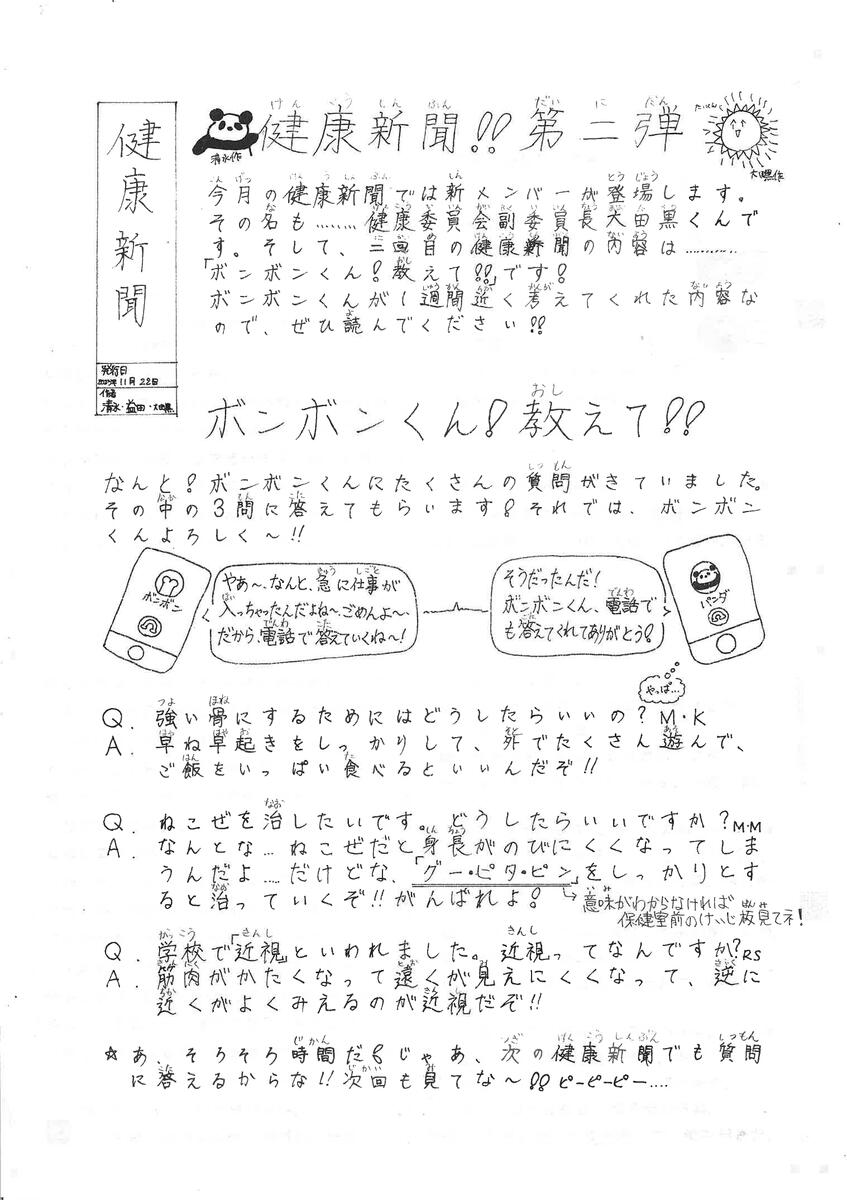 健康新聞
発行日
2023年11月22日
作者
清水・益田・大田黒
健康新聞!!第二弾
清水作
たいよう
大田黒作
今月の健康新聞では新メンバーが登場します。
その名も………健康委員会副委員長大田黒くんで
す。そして、二回目の健康新聞の内容は…………
「ボンボンくん!教えて!!」です!
ボンボンくんが1週間近く考えてくれた内容な
ので、ぜひ読んでください!!
ボンボンくん!教えて!!
なんと!ボンボンくんにたくさんの質問がきていました。
その中の3問に答えてもらいます!それでは、ボンボン
くんよろしく~!!
ボンボン
やあ~、なんと、急に仕事が
入っちゃったんだよね~ごめんよ~、
だから、電話で答えていくね~!
そうだったんだ!
ボンボンくん、電話で
も答えてくれてありがとう!
パンダ
やっぱ…
Q.強い骨にするためにはどうしたらいいの?M・K
A.早ね早起きをしっかりして、外でたくさん遊んで、
ご飯をいっぱい食べるといいんだぞ!!
Q.ねこぜを治したいです。どうしたらいいですか?M・M
A.なんとな…ねこぜだと身長がのびにくくなってしま
うんだよ….だけどな、「グー・ピタ・ピン」をしっかりとす
ると治っていくぞ!!がんばれよ!
意味がわからなければ
保健室前のけいじ板見てネ!
Q.学校で「近視」といわれました。近視ってなんですか?RS
A.筋肉がかたくなって遠くが見えにくくなって、逆に
近くがよくみえるのが近視だぞ!!
☆あ、そろそろ時間だ!じゃあ、次の健康新聞でも質問
に答えるからな!!次回も見てな~!!ピーピーピー….